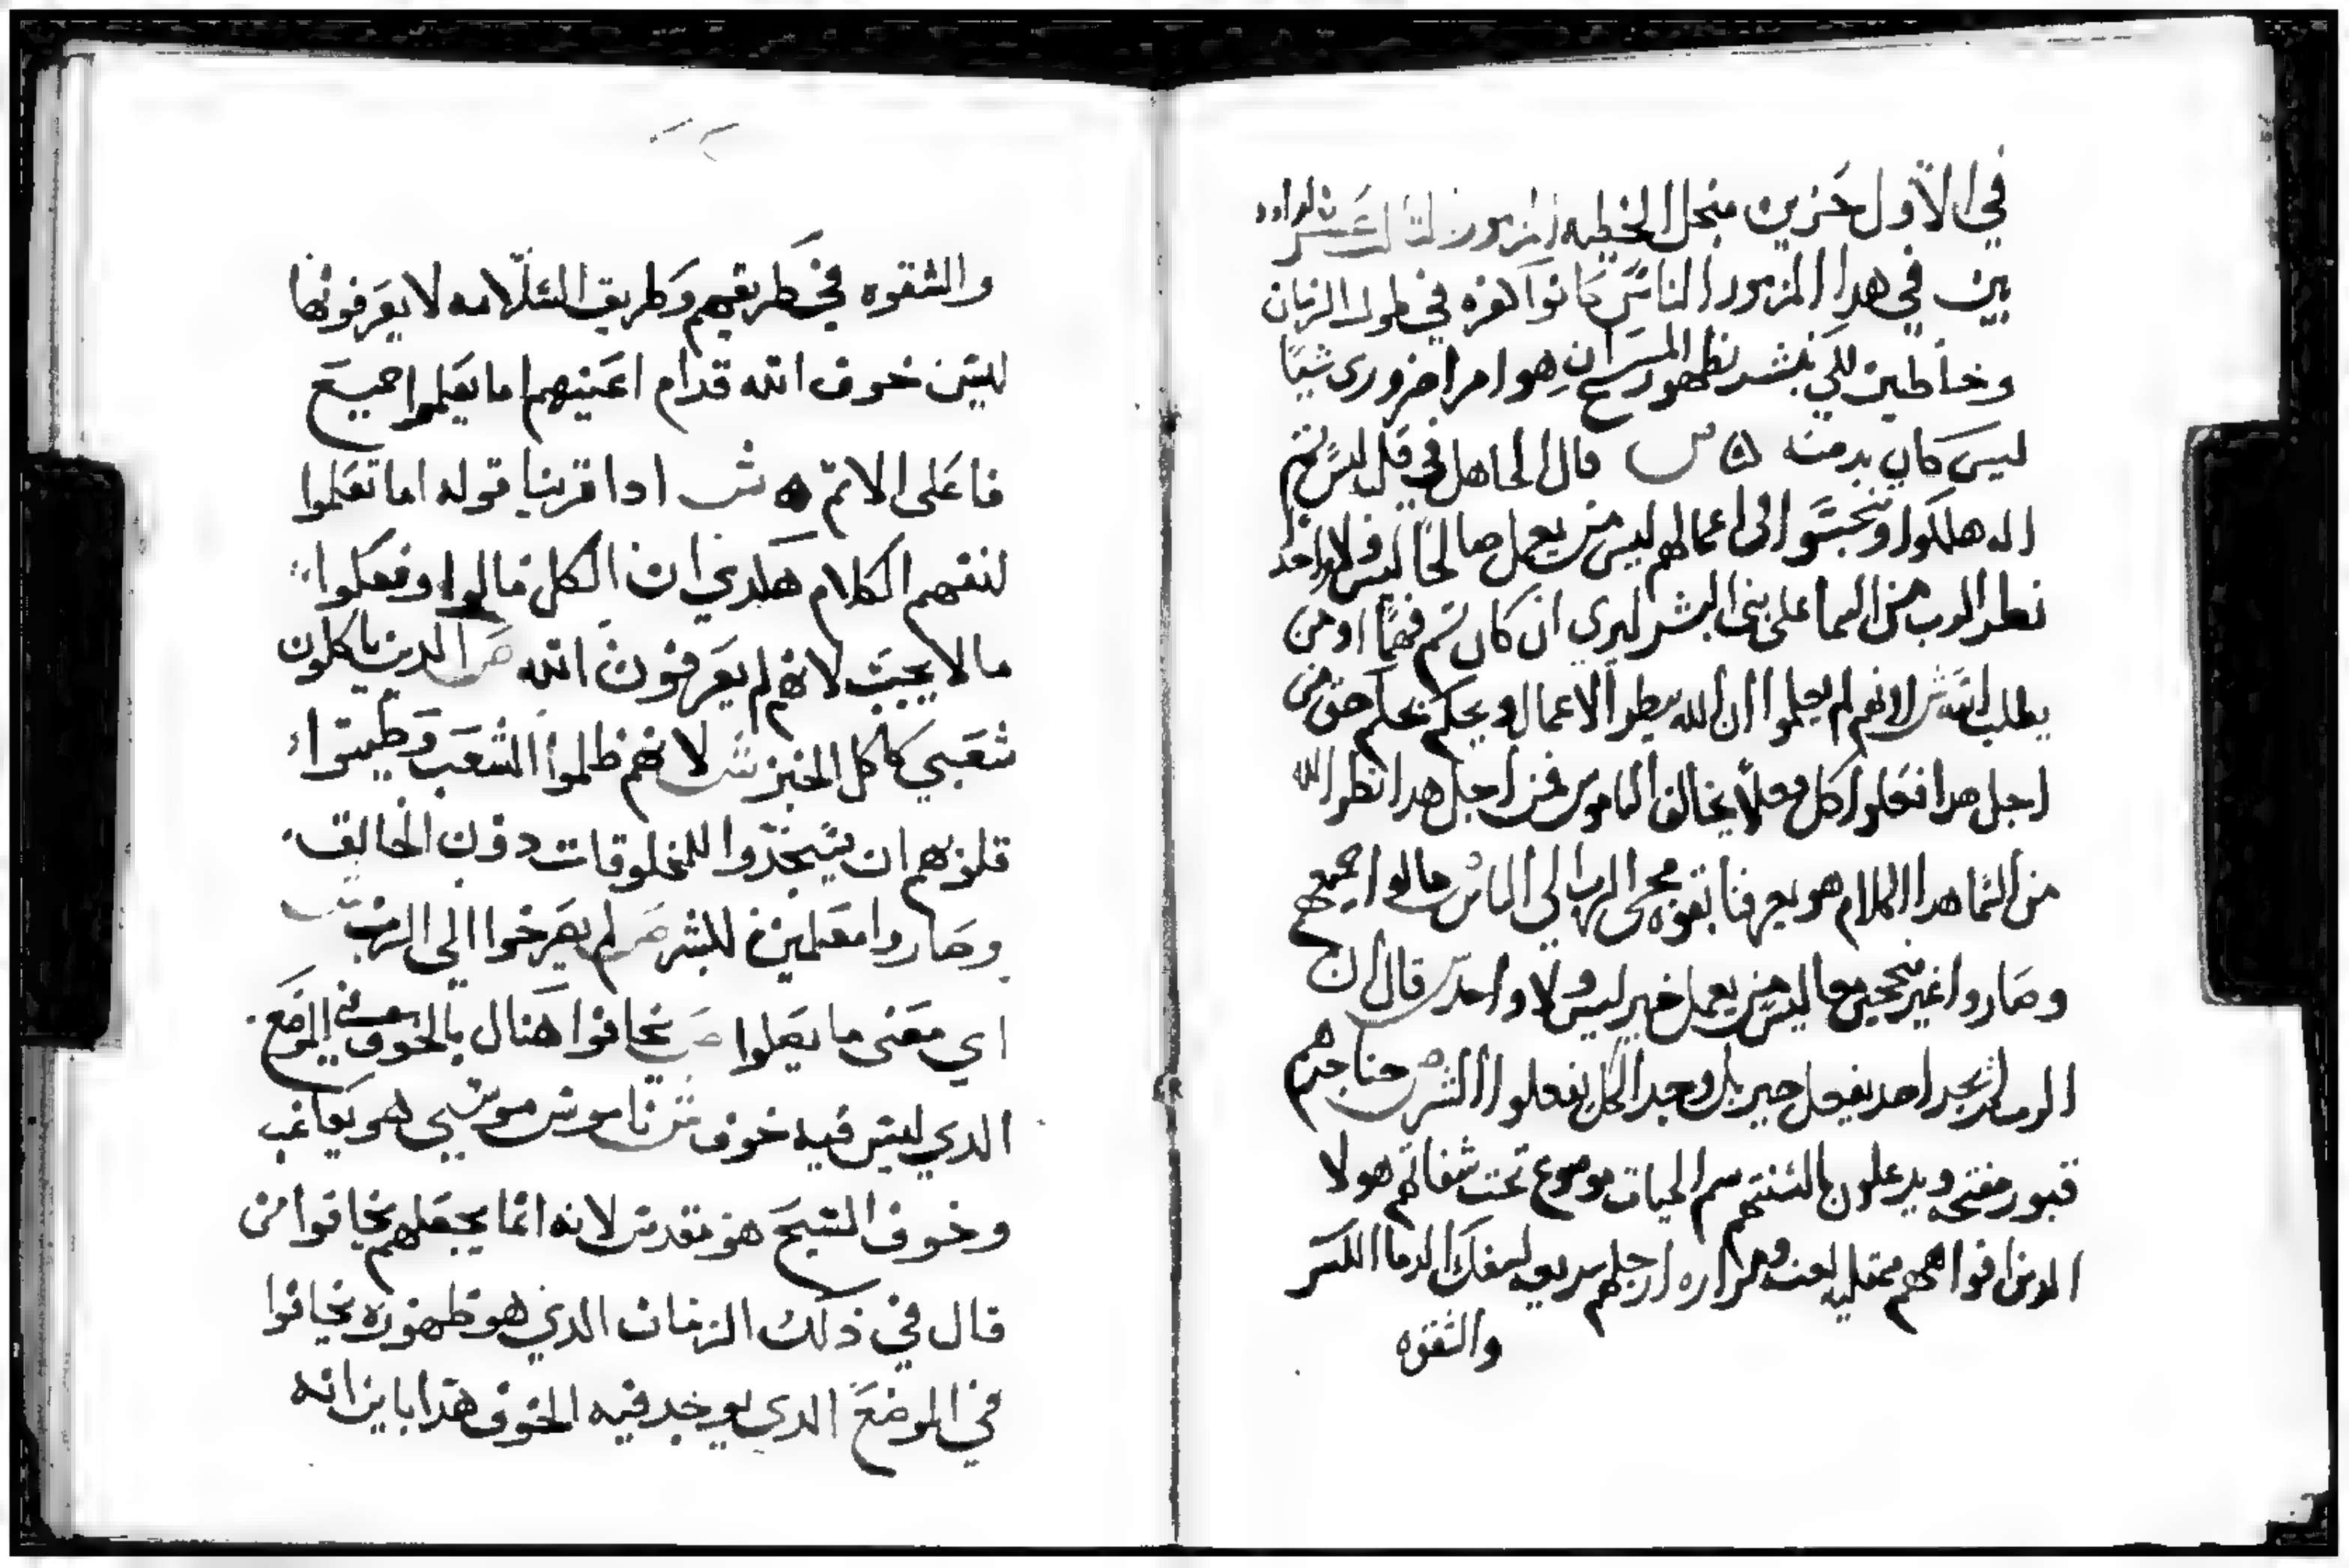 في الاول حزين منجل الخطيه المزمور الثالث عشر لداود
بين في هدا المزمور الناس كانوا كفره في طول الزمان
وخاطين لكي نبشر بظهور المسيح ان هو امرا ضروري شيا
ليس كان بد منه ه ص قال الجاهل في قلبه ليس ثم
اله هلكوا وتنجسوا في اعمالهم ليس من يعمل صالحا ليس ولا واحد
نطر الرب من السما على بني البشر ليري ان كان ثم فهما او من
يطلب الله ش لانهم لم يعلموا ان الله ينطر الاعمال ويحكم بحكم حق من
اجل هدا فعلوا كل فعلا يخالف الناموس فمن اجل هدا نطر الله
من السما هدا الكلام هو يعرفنا بقوه مجي الرب الي الناس ص مالوا جميعهم
وصاروا غير منجحين معا ليس من يعمل خير ليس ولا واحد ش قال ان
الرب لم يجد احد يفعل خير بل وجد الكل يفعلوا الشر ص حناجرهم
قبور مفتحه ويدغلون بالسنتهم سم الحيات موضوع تحت شفاتهم هولا
الدين افواههم ممتليه لعنه ومراره ارجلهم سريعه لسفك الدما الكسر
والشقوه
والشقوه في طريقهم وطريق السلامه لا يعرفونها
ليس خوف الله قدام اعينهم اما يعلموا جميع
فاعلى الاتم ه ش ادا قرينا قوله اما تعلموا
لنفهم الكلام هكدي ان الكل مالوا وفعلوا
ما لا يجب لانهم لم يعرفون الله ص الدين ياكلون
شعبي كاكل الخبز ش لانهم ظلموا الشعب وطيبوا
قلوبهم ان يسجدوا للمخلوقات دون الخالق
وصاروا معلمين للبشر ص لم يصرخوا الي الرب ش
اي معنى ما يعلوا ص يخافوا هنال بالخوف في الموضع
الدي ليس فيه خوف ش ناموس موسي هو يعاقب
وخوف المسيح هو مقدس لانه انما يجعلهم يخافوا من
قال في ذلك الزمان الدي هو ظهوره يخافوا
في الموضع الدي يوجد فيه الخوف هدا باين انه